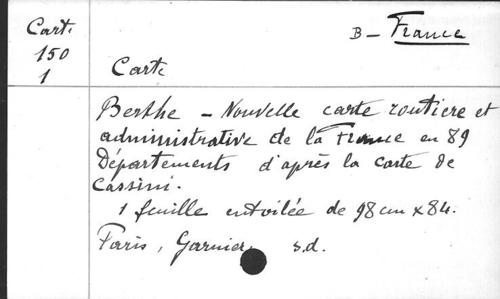 Cart. B - France
150
1 Carte
Berthe - Nouvelle carte routiere et
administrative de la France en 89
Départements d'après la carte de
Cassini.
1 feuille entoilée de 98 cm x 84.
Paris, Garnier, s.d.